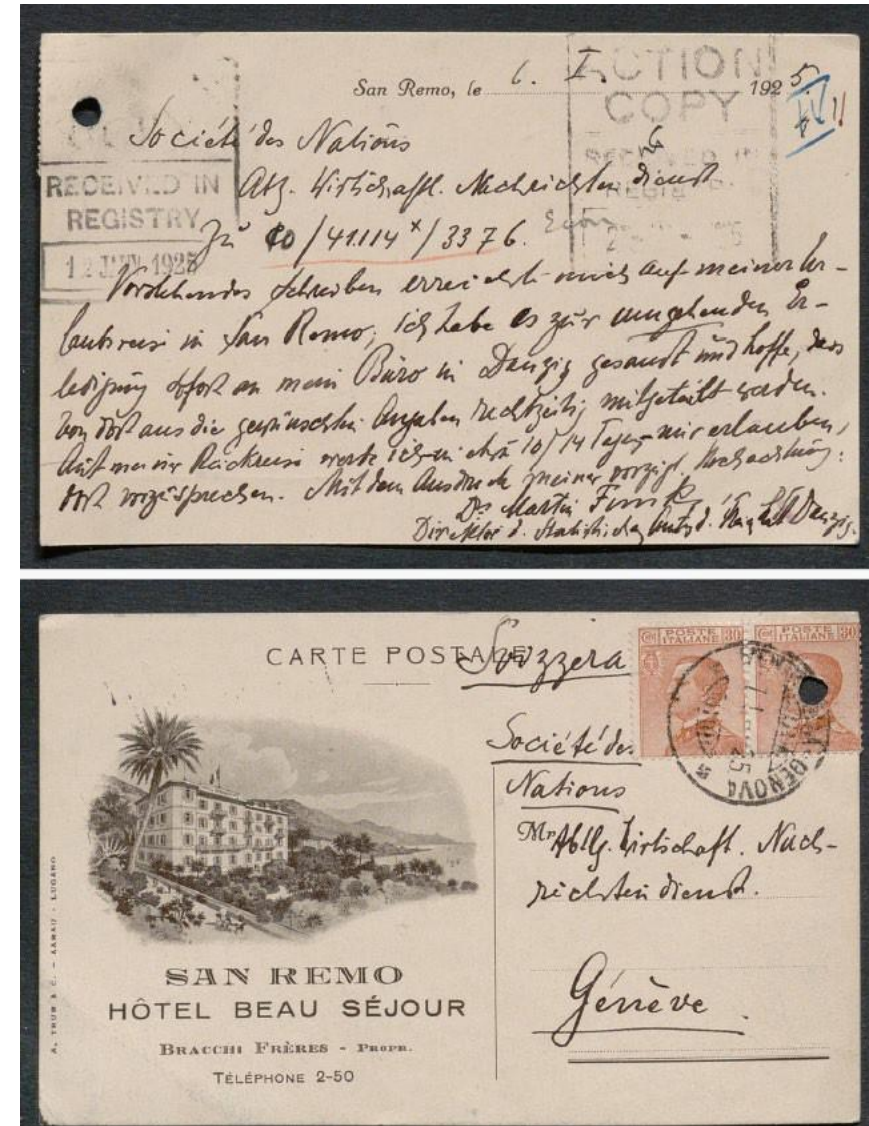 San Remo, le 6. I. 1925.
ACTION
COPY
Société des Nations
RECEIVED IN
REGISTRY
12 JAN 1925
RECEIVED IN
Abt. Wirtschaftl. Nachrichtendienst
Zu 10/41114 x/3376.
Vorstehendes Schreiben erreichte mich auf meiner Ur-
laubsreise in San Remo; ich habe es zur umgehenden Er-
ledigung sofort an mein Büro in Danzig gesandt und hoffe, dass
von dort aus die gewünschten Angaben rechtzeitig mitgeteilt werden.
Auf meiner Rückreise werde ich in etwa 10/14 Tagen mir erlauben,
dort vorzusprechen. Mit dem Ausdruck meiner vorzügl. Hochachtung:
Dr Martin Funk
Direktor d. Statistischen Amts d. Danzig.
CARTE POSTALE
Svizzera
POSTE ITALIANE 30
POSTE ITALIANE 30
GENOVA
Société des
Nations
Mr Abtlg. Wirtschaft. Nach-
richtendienst.
Génève
SAN REMO
HÔTEL BEAU SÉJOUR
BRACCHI FRÈRES - PROPR.
TÉLÉPHONE 2-50
A. TRÜB & C. - AARAU - LUGANO